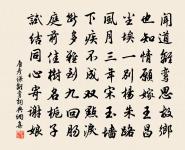 聞道離鸞思故鄉
也知情願嫁王昌
塵埃一別楊朱路
風月三年宋玉墻
下疾不成雙點淚
斷多難到九回腸
庭前佳樹名梔子
試結同心寄謝娘
唐彥謙離鸞